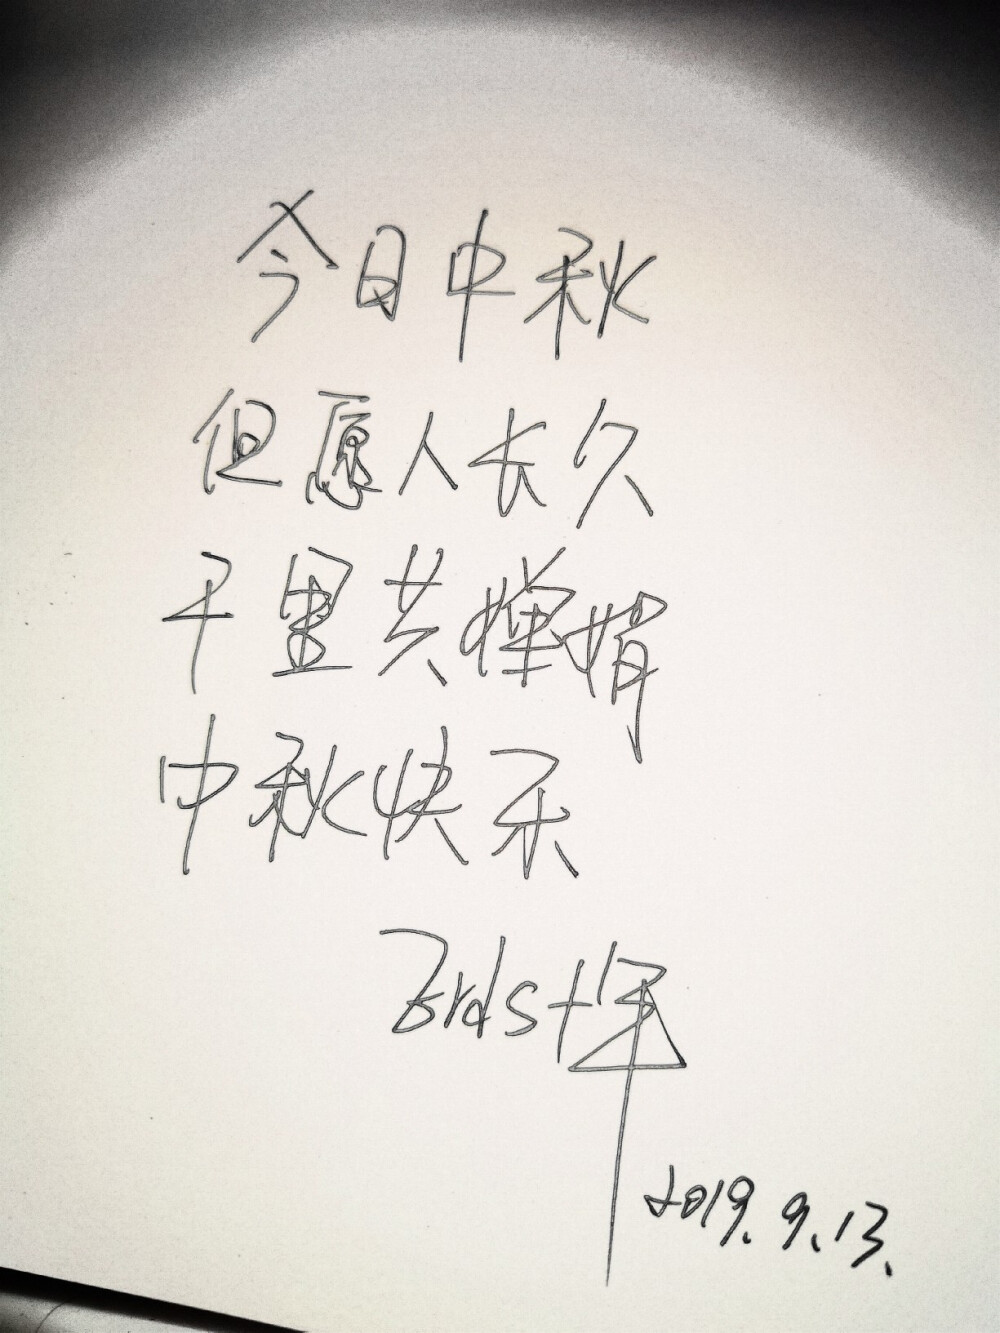 今日中秋
但愿人长久
千里共婵娟
中秋快乐
2019.9.13.